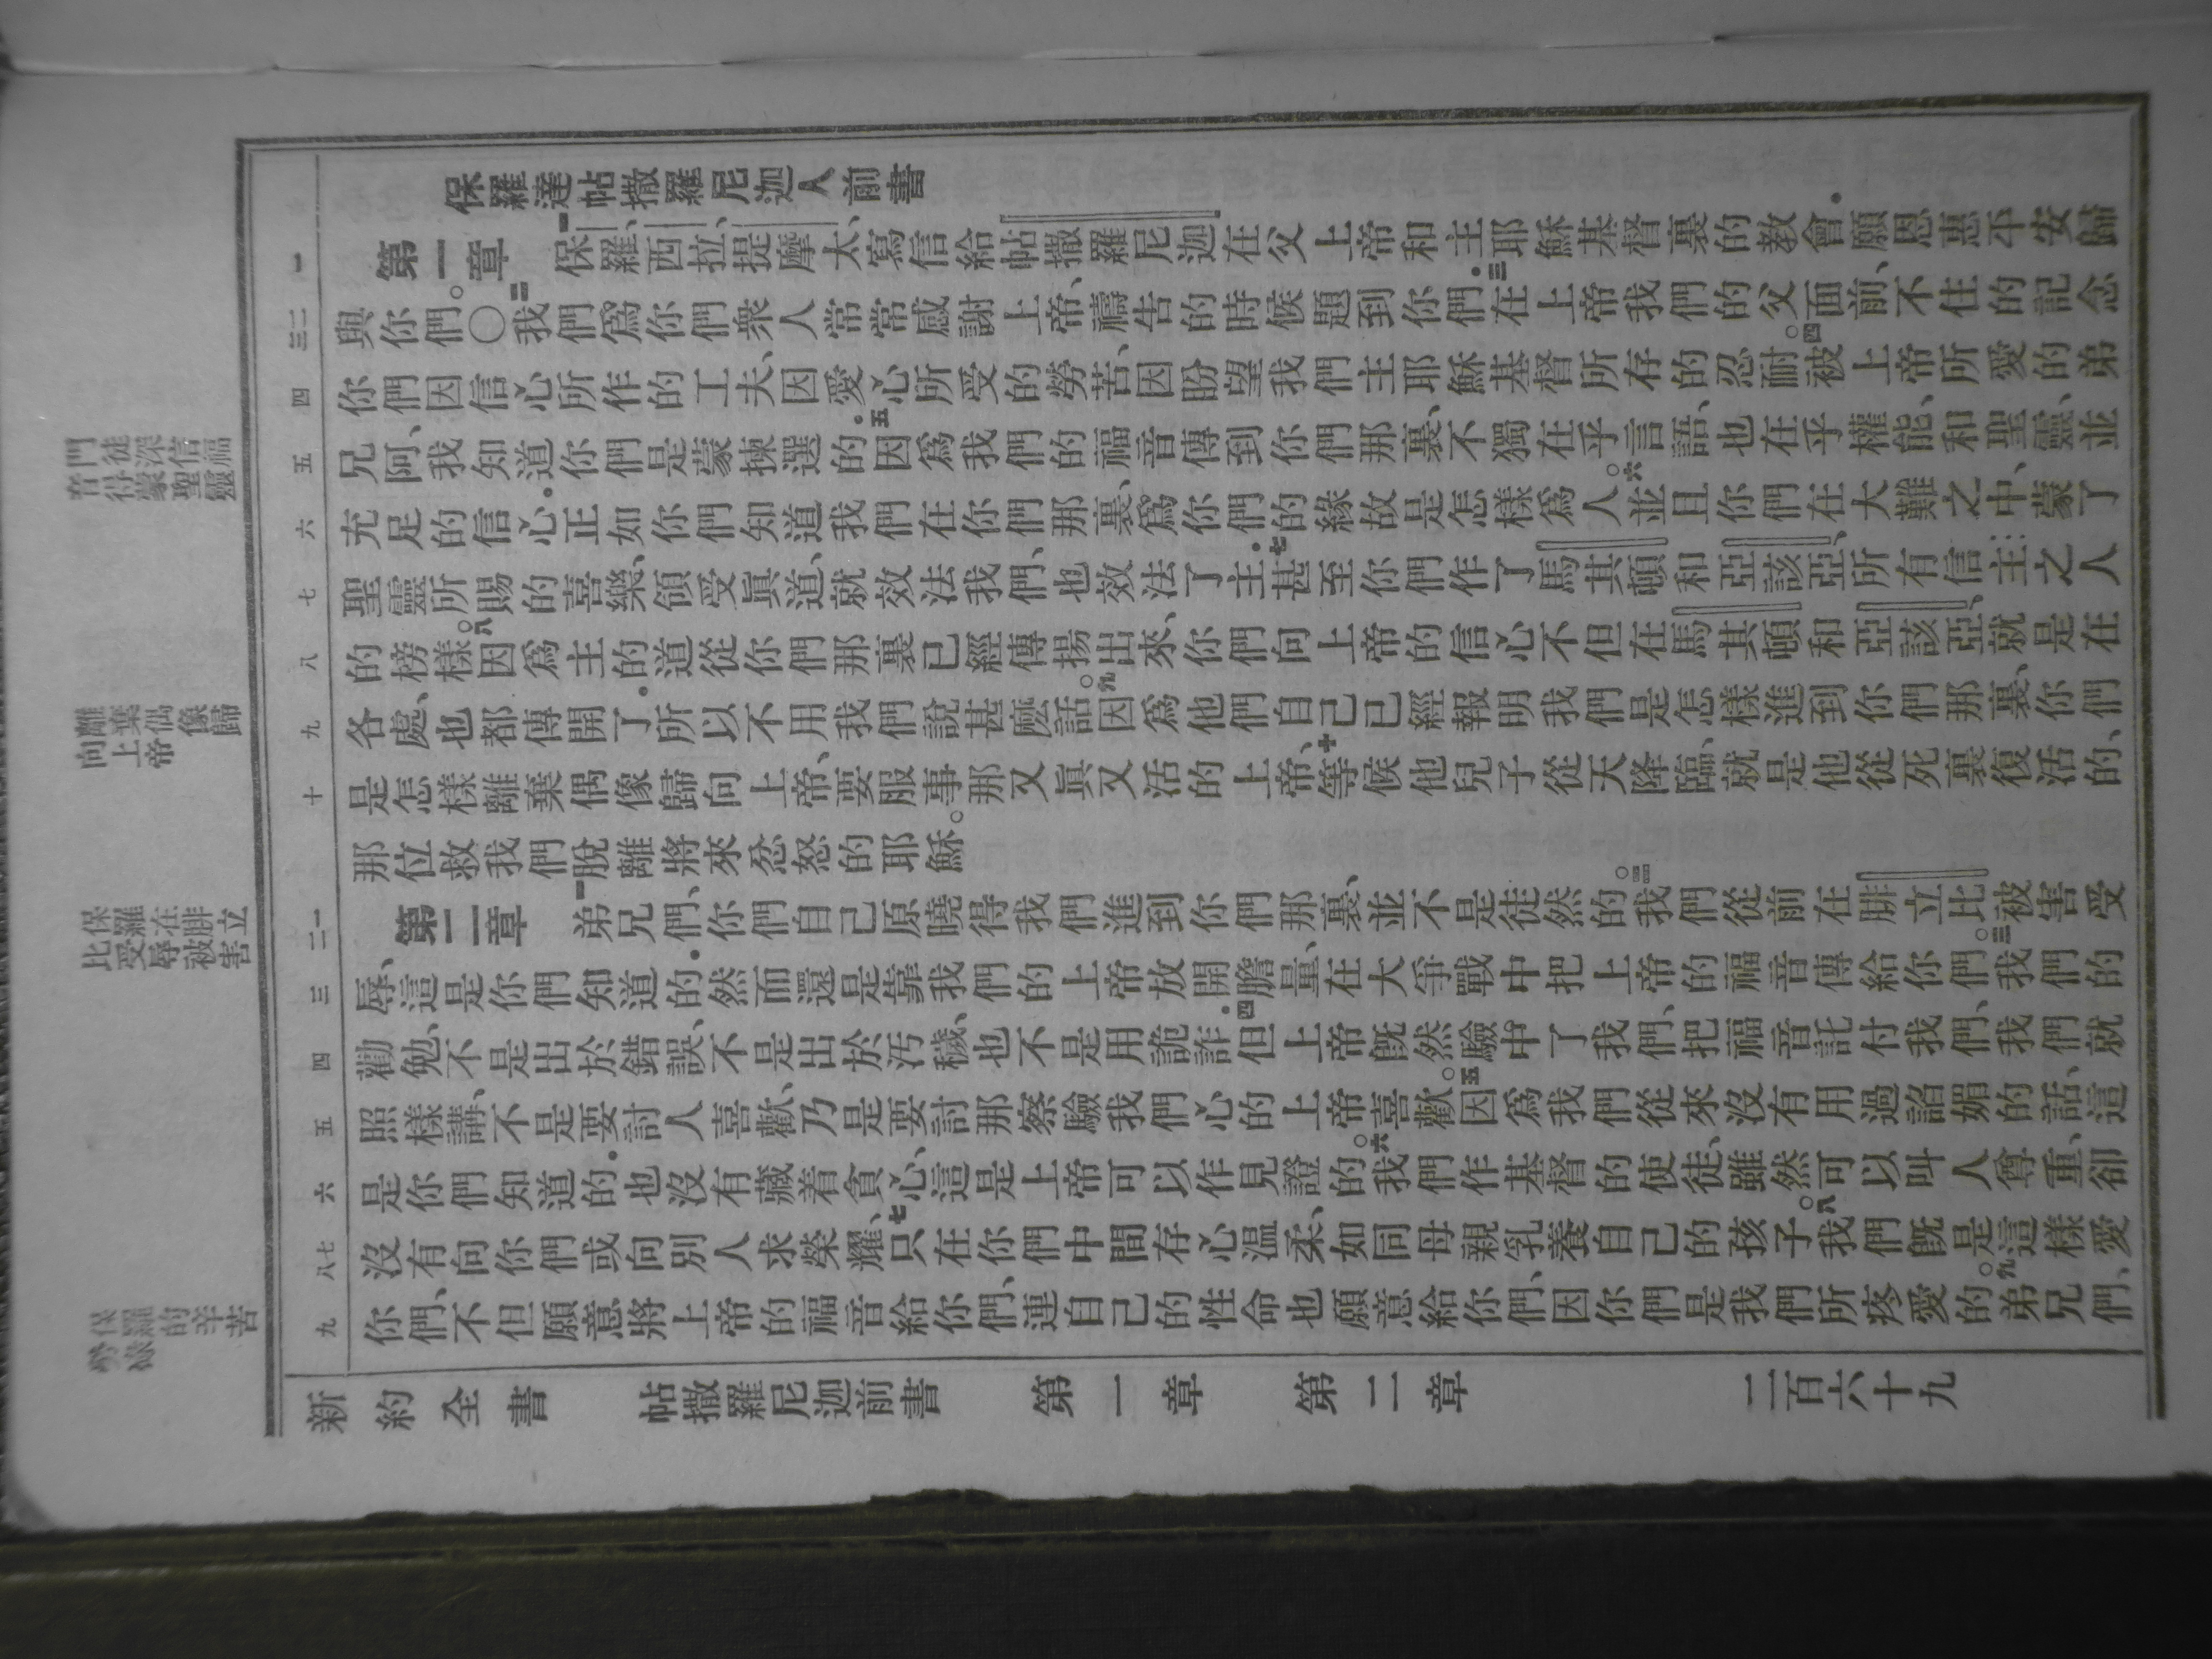 保羅達帖撒羅尼迦人前書
第一章 一保羅、西拉、提摩太、寫信給帖撒羅尼迦在父上帝和主耶穌基督裏的教會.願恩惠平安歸
與你們。○二我們爲你們衆人常常感謝上帝、禱告的時候題到你們.三在上帝我們的父面前、不住的記念
你們因信心所作的工夫、因愛心所受的勞苦、因盼望我們主耶穌基督所存的忍耐。四被上帝所愛的弟
兄阿、我知道你們是蒙揀選的.五因爲我們的福音傳到你們那裏、不獨在乎言語、也在乎權能、和聖靈、並
充足的信心.正如你們知道我們在你們那裏、爲你們的緣故是怎樣爲人。六並且你們在大難之中、蒙了
聖靈所賜的喜樂、領受眞道、就效法我們、也效法了主.七甚至你們作了馬其頓和亞該亞、所有信主之人
的榜樣。八因爲主的道從你們那裏已經傳揚出來、你們向上帝的信心不但在馬其頓和亞該亞、就是在
各處、也都傳開了.所以不用我們說甚麼話。九因爲他們自己已經報明我們是怎樣進到你們那裏、你們
是怎樣離棄偶像歸向上帝、要服事那又眞又活的上帝、十等候他兒子從天降臨、就是他從死裏復活的、
那位救我們脫離將來忿怒的耶穌。
第二章 一弟兄們、你們自己原曉得我們進到你們那裏、並不是徒然的。二我們從前在腓立比被害受
辱、這是你們知道的.然而還是靠我們的上帝放開膽量、在大爭戰中把上帝的福音傳給你們。三我們的
勸勉、不是出於錯誤、不是出於汚穢、也不是用詭詐.四但上帝旣然驗中了我們、把福音託付我們、我們就
照樣講、不是要討人喜歡、乃是要討那察驗我們心的上帝喜歡。五因爲我們從來沒有用過諂媚的話、這
是你們知道的.也沒有藏着貪心、這是上帝可以作見證的。六我們作基督的使徒、雖然可以叫人尊重、卻
沒有向你們或向別人求榮耀、七只在你們中間存心溫柔、如同母親乳養自己的孩子。八我們旣是這樣愛
你們、不但願意將上帝的福音給你們、連自己的性命也願意給你們、因你們是我們所疼愛的。九弟兄們、
新約全書 帖撒羅尼迦前書 第一章 第二章 二百六十九
一
二三
四
五
六
七
八
九
十
一二
三
四
五
六
七八
九
門徒深信福
音得蒙聖靈
離棄偶像歸
向上帝
保羅在腓立
比受辱被害
保羅的辛苦
勞碌